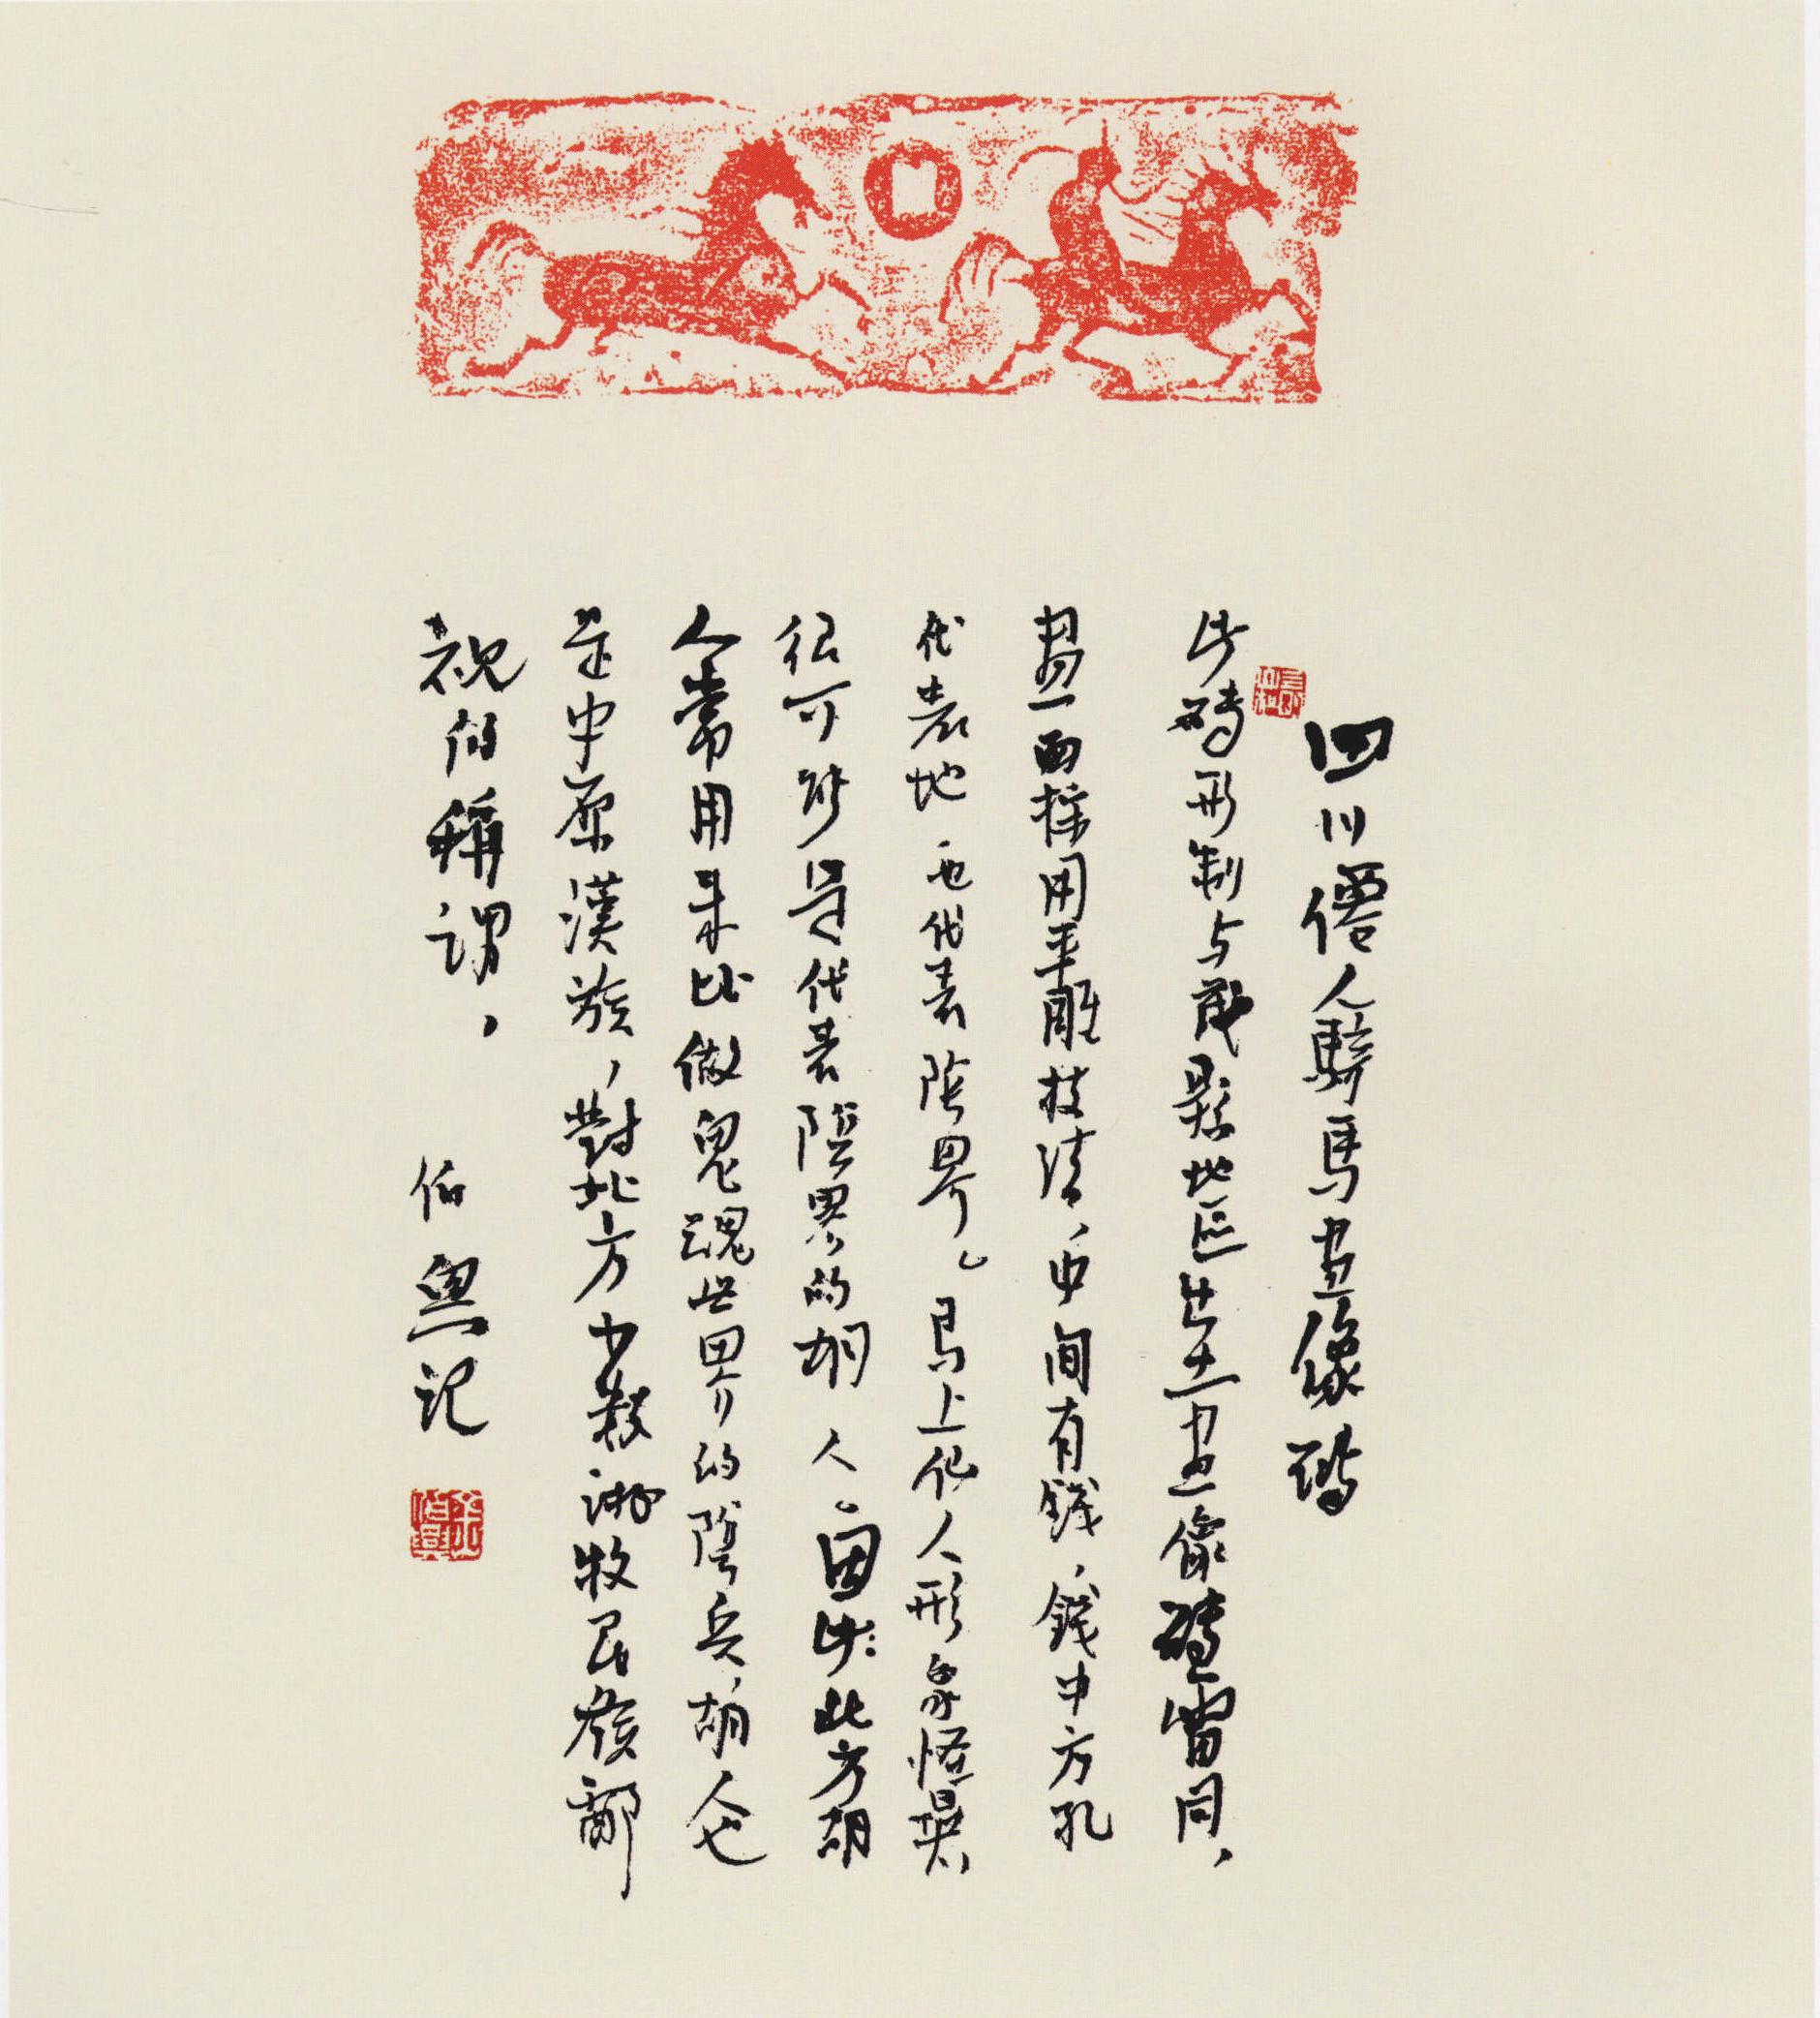 四川僊人騎馬畫像磚
此磚形制与茂縣地區出土畫像磚雷同，
畫面採用平雕技法，中间有錢，錢中方孔
代表地也代表陰界。馬上仙人形象怪異，
很可能是代表陰界的胡人。因此北方胡
人常用来比做鬼魂世界的陰兵，胡人也
是中原漢族，對北方少数游牧民族鄙
視的稱謂，
伯魚记